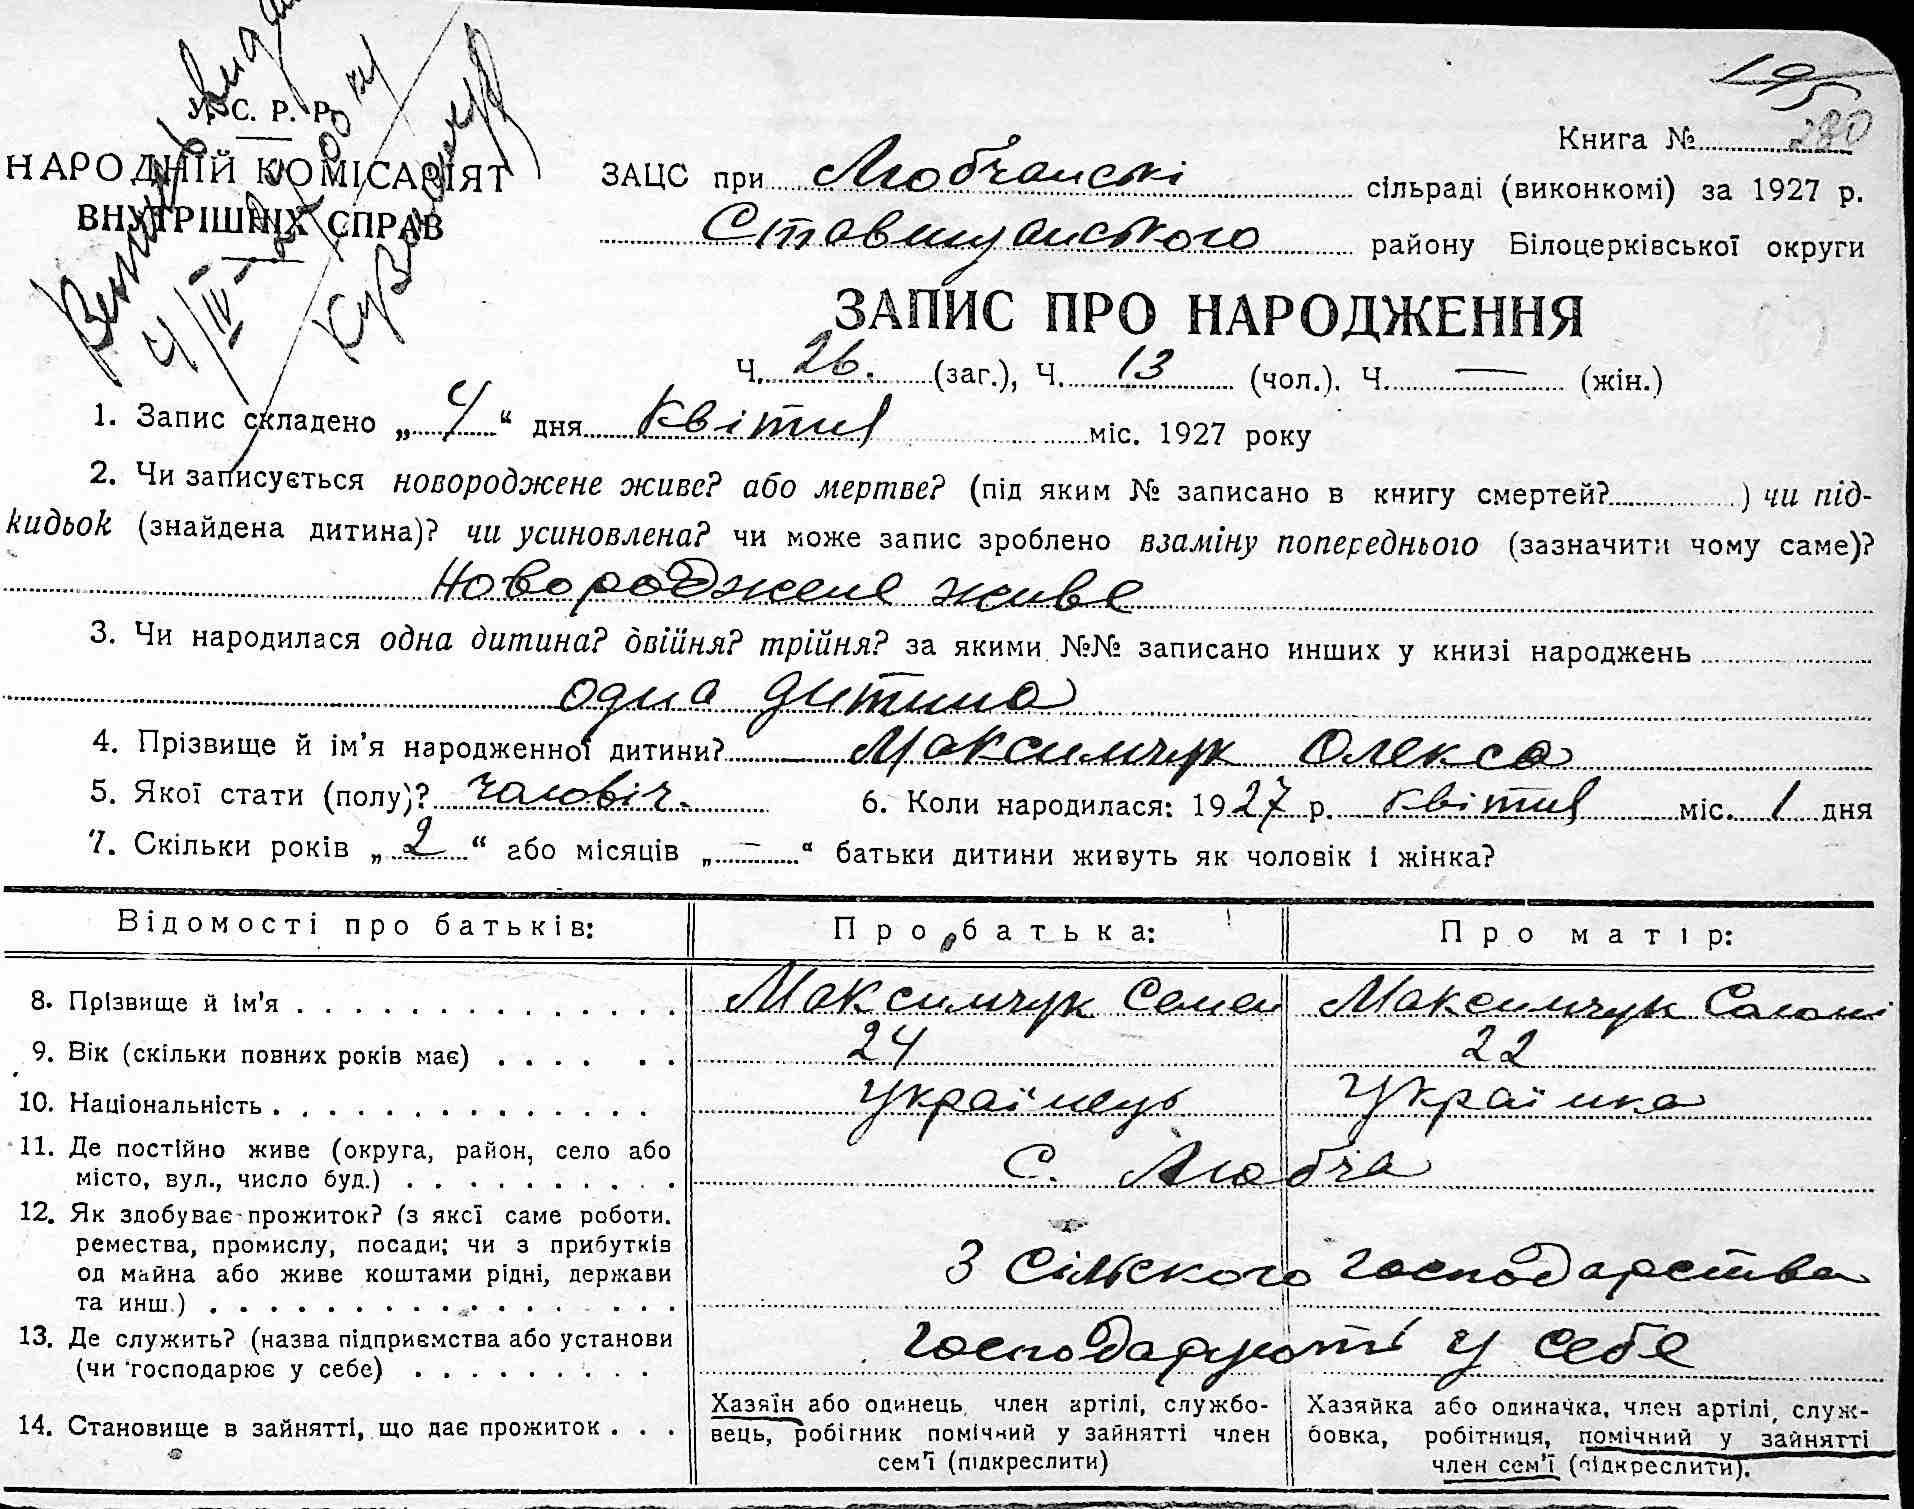 У. С. Р. Р.
НАРОДНІЙ КОМІСАРІЯТ
ВНУТРІШНІХ СПРАВ
195
280
Книга №
ЗАЦС при Любчанскі сільраді (виконкомі) за 1927 р.
Ставищанського району Білоцерківської округи
ЗАПИС ПРО НАРОДЖЕННЯ
Ч. 26. (заг.), Ч. 13 (чол.). Ч. — (жін.)
1. Запис складено „ 4 “ дня квітня міс. 1927 року
2. Чи записується новороджене живе? або мертве? (під яким № записано в книгу смертей? ) чи під-
кидьок (знайдена дитина)? чи усиновлена? чи може запис зроблено взаміну попереднього (зазначити чому саме)?
Новороджене живе
3. Чи народилася одна дитина? двійня? трійня? за якими №№ записано инших у книзі народжень
одна дитина
4. Прізвище й ім’я народженної дитини? Максимчук Олекса
5. Якої стати (полу)? чоловіч. 6. Коли народилася: 1927 р. квітня міс. 1 дня
7. Скільки років „ 2 “ або місяців „ — “ батьки дитини живуть як чоловік і жінка?
Відомості про батьків: Про батька: Про матір:
8. Прізвище й ім’я Максимчук Семен Максимчук Солоні
9. Вік (скільки повних років має) 24 22
10. Національність українець Українка
11. Де постійно живе (округа, район, село або
місто, вул., число буд.) С. Любча
12. Як здобуває прожиток? (з якої саме роботи.
ремества, промислу, посади; чи з прибутків
од майна або живе коштами рідні, держави
та инш.) З сільского господарства
13. Де служить? (назва підприємства або установи
(чи господарює у себе) господарують у себе
14. Становище в зайнятті, що дає прожиток
Хазяїн або одинець, член артілі, службо-
вець, робігник помічний у зайнятті член
сем’ї (підкреслити)
Хазяйка або одиначка, член артілі, служ-
бовка, робітниця, помічний у зайнятті
член сем’ї (підкреслити).